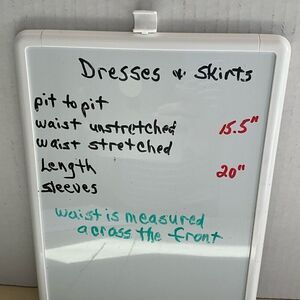 Dresses & Skirts
pit to pit
waist unstretched 15.5"
waist stretched
Length 20"
sleeves
waist is measured
across the front